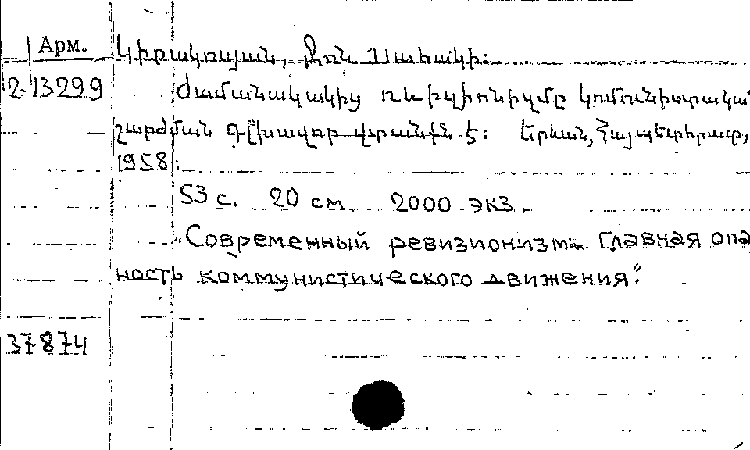 Арм.
Կիրակոսյան, Ջոն Սահակի:
2-13299
Ժամանակակից ռևիզիոնիզմը կոմունիստական
շարժման գլխավոր վտանգն է: Երևան, Հայպետհրատ,
1958.
53 с. 20 см. 2000 экз.
"Современный ревизионизм - главная опас
ность коммунистического движения".
37874